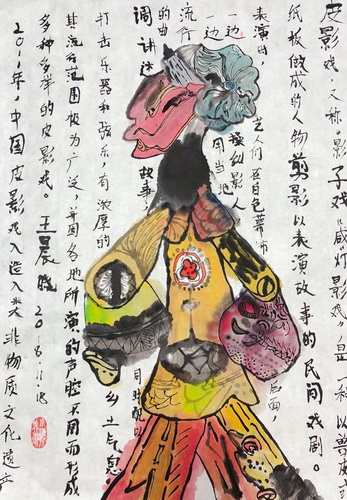 皮影戏,又称“影子戏”或“灯影戏”,是一种以兽皮或
纸板做成的人物剪影以表演故事的民间戏剧。
表演时,艺人们在白色幕布后面,
一边操纵影人
一边用当地
流行
的曲
调讲述故事,
同时
打击乐器和弦乐,有浓厚的乡土气息
其流行范围极为广泛,并因各地所演的声腔不同而形成
多种多样的皮影戏。王晨晓
2011年,中国皮影戏入选人类非物质文化遗产